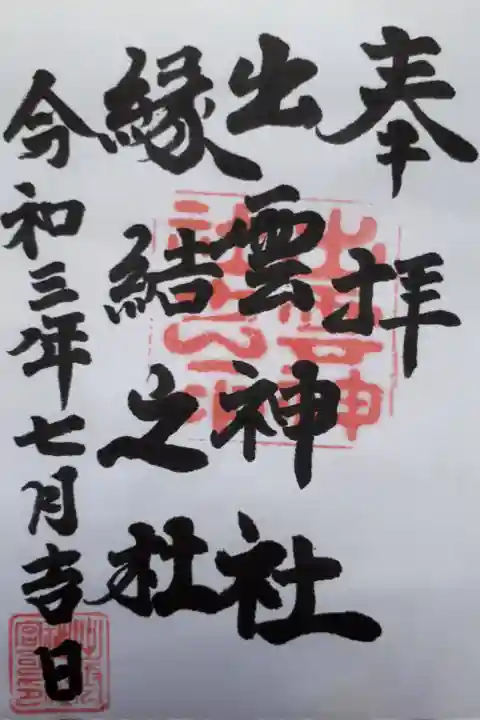 奉拝
出雲神社
縁結之杜
令和三年七月吉日